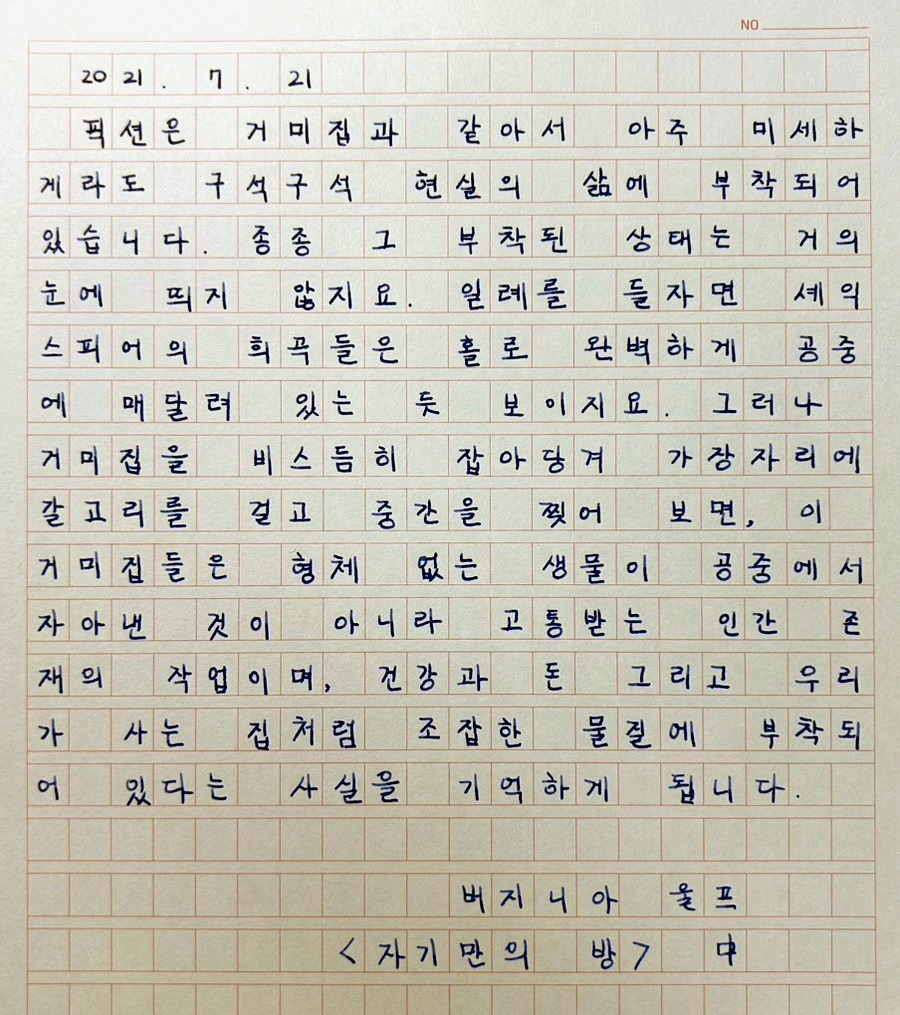 NO
2021. 7. 21
픽션은 거미집과 같아서 아주 미세하
게라도 구석구석 현실의 삶에 부착되어
있습니다. 종종 그 부착된 상태는 거의
눈에 띄지 않지요. 일례를 들자면 셰익
스피어의 희곡들은 홀로 완벽하게 공중
에 매달려 있는 듯 보이지요. 그러나
거미집을 비스듬히 잡아당겨 가장자리에
갈고리를 걸고 중간을 찢어 보면, 이
거미집들은 형체 없는 생물이 공중에서
자아낸 것이 아니라 고통받는 인간 존
재의 작업이며, 건강과 돈 그리고 우리
가 사는 집처럼 조잡한 물질에 부착되
어 있다는 사실을 기억하게 됩니다.
버지니아 울프
<자기만의 방> 中